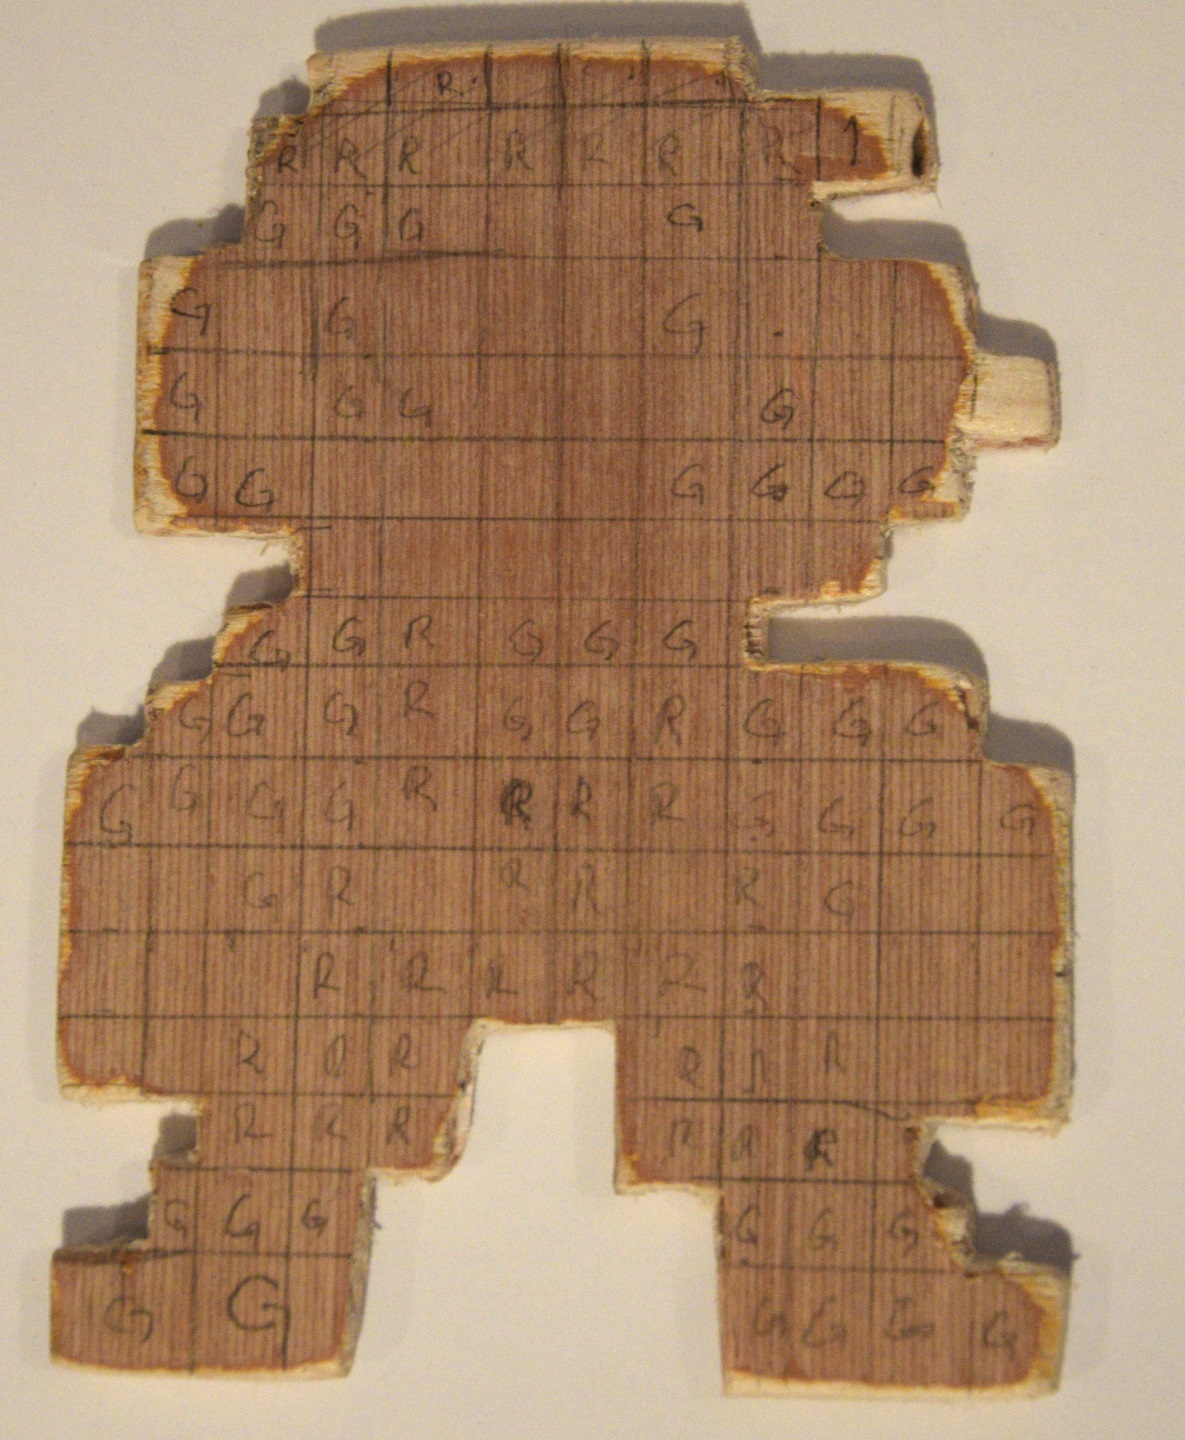 R
R R R R R R R
G G G G
G G G
G G G G
G G G G G G
G G R G G G
G G G R G G R G G G
G G G G R R R R G G G G
G R R R R G
R R R R R R
R R R R
R R R R R R
G G G G G G
G G G G G G